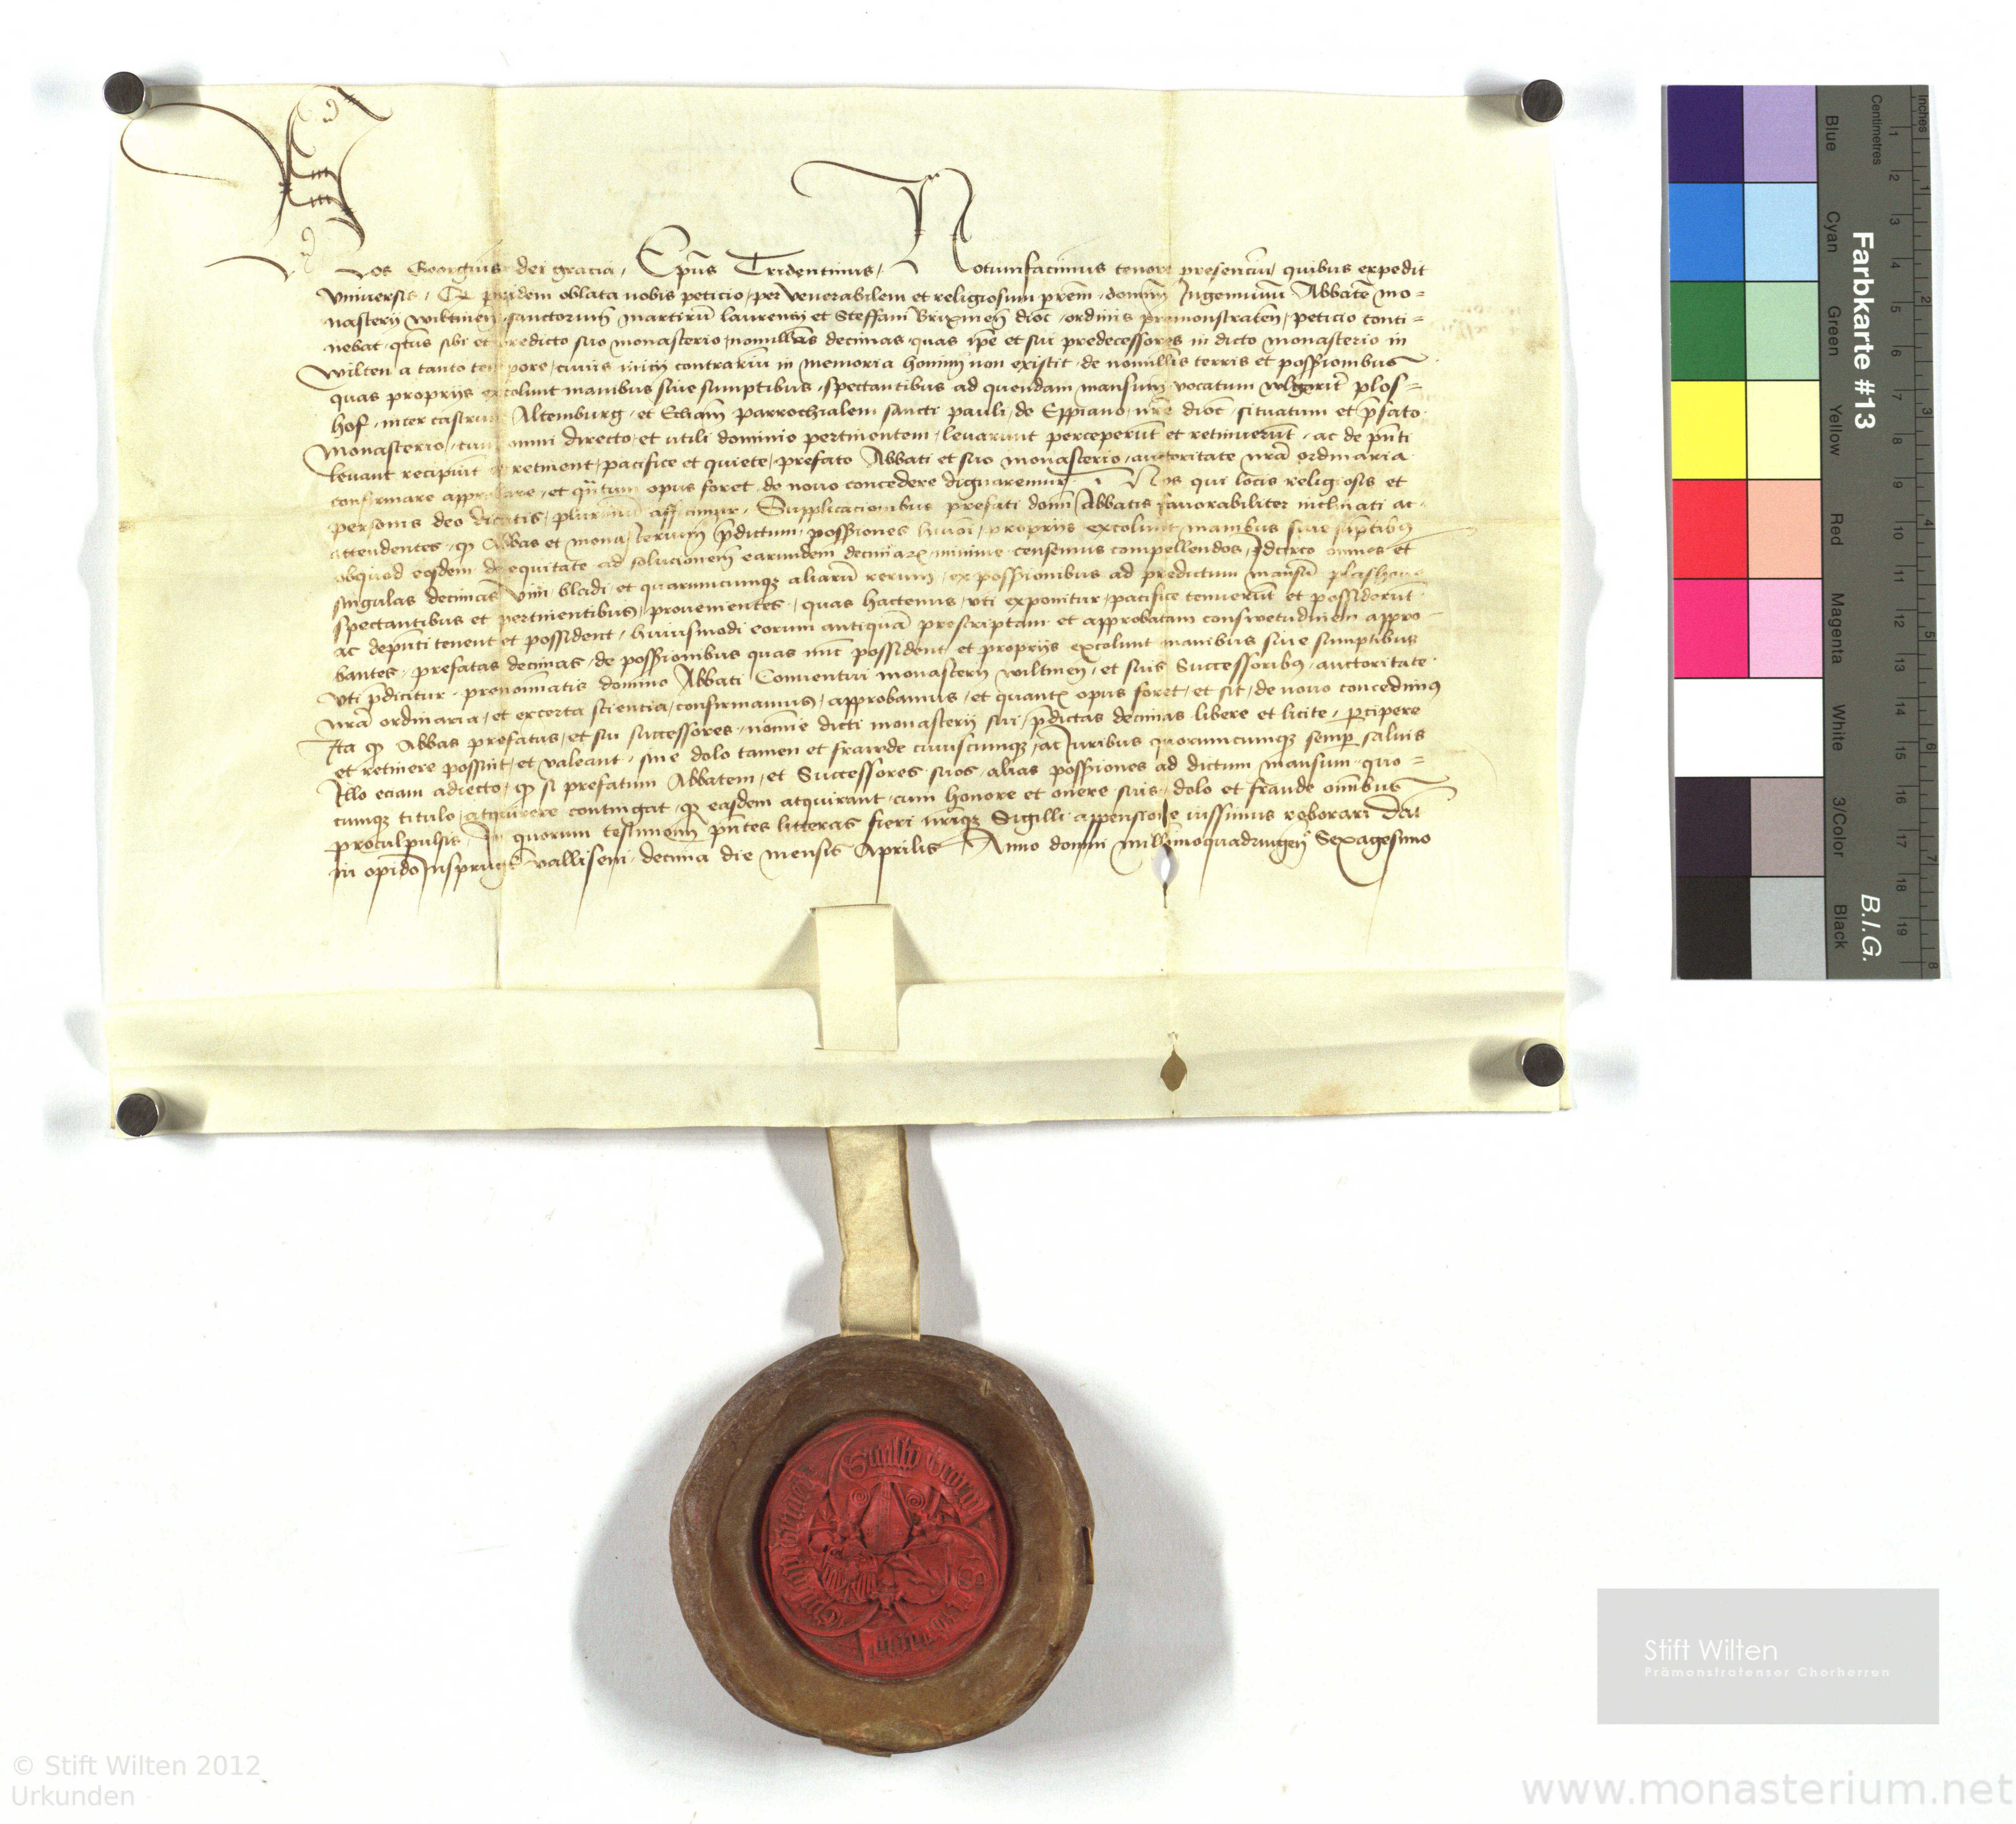 Nos Georgius dei gracia, Ep̄us Tridentinus, Notumfacimus tenore presenciū quibus expedit
Vniuersis, Q pridem oblata nobis peticio, per venerabilem et religiosum pr̄em, dominū Ingenuinū Abbatē mo=
nasterij wiltineñ, sanctorum martirū laurencij et Steffani Brixineñ dioc̄, ordinis premonstrateñ, peticio conti=
nebat, q̄tus sibi et predicto suo monasterio, nonnullas decimas, quas ip̄e et sui predecessores in dicto monasterio in
wilten a tanto tempore, cuius inicij contrariū in memoria hominū non existit, de nonullis terris et possessionibus
quas proprijs excolunt manibus siue sumptibus, spectantibus ad quendam mansum vocatum wlgarit̄ plos=
hof, inter castrum Altemburg, et Eccliam parrochialem sancti pauli, de Eppiano, nr̄e dioc̄, situatum et p̄fato
Monasterio, cum omni directo, et vtili dominio pertinentem, leuarunt perceperūt et retinuerūt, ac de pn̄ti
leuant recipiūt et retinent, pacifice et quiete, prefato Abbati et suo monasterio, auctoritate nrā ordinaria
confirmare approbare, et q̄ntum opus foret, de nouo concedere dignaremur. Nos qui locis religiosis et
personis deo dicatis, plurimū afficimur, Supplicacionibus prefati domi Abbatis fauorabiliter inclinati ac
attendentes, q̄ Abbas et monasterium p̄dictum, possiones huiōi, proprijs excolunt, manibus siue sūptibus
obquod eosdem de equitate ad solucionem earundem decimarꝫ, minime censemus compellendos, Idcirco omnes et
singulas decimas vini bladi, et quarumcunqꝫ aliarū rerum, ex possionibus ad predictum mansū ploshoue
spectantibus et pertinentibus, prouenientes, quas hactenus, vti exponitur, pacifice tenuerūt et possiderūt
ac depn̄ti tenent et possident, huiusmodi eorum antiquā prescriptam et approbatam conswetudinem appro
bantes, prefatas decimas, de possionibus quas nūc possident, et proprijs excolunt manibus siue sumptibus
vti p̄dicitur, prenominatis domino Abbati Conuentui monasterij wiltineñ, et suis Successoribus, auctoritate
nrā ordinaria, et excerta scientia, confirmamus, approbamus, et quantꝫ opus foret, et sit, de nouo concedimus
Ita q̄ Abbas prefatus, et sui successores, nomine dicti monasterij sui, p̄dictas decimas libere et licite, p̄cipere
et retinere possint, et valeant, sine dolo tamen et frawde cuiuscunqꝫ, ac Juribus quorumcunqꝫ semp̄ saluis
Illo eciam adiecto, q̄ si prefatum Abbatem, et Successores suos, alias possiones ad dictum mansum, quo=
cunqꝫ titulo, atquirere contingat, q̄ easdem atquirant, cum honore et onere suis, dolo et fraude omibus
proculpulsis, In quorum testimoniū pn̄tes litteras fieri nr̄iqꝫ Sigilli appensione iussimus roborari Dat̄
in opido Insprugk vallisenj, decima die mensis Aprilis Anno domini millesimoquadringeñ Sexagesimo
Inches
Centimetres
Farbkarte #13
B.I.G.
Blue Cyan Green Yellow Red Magenta White 3/Color Black
Stift Wilten
Prämonstratenser Chorherren
© Stift Wilten 2012
Urkunden
www.monasterium.net